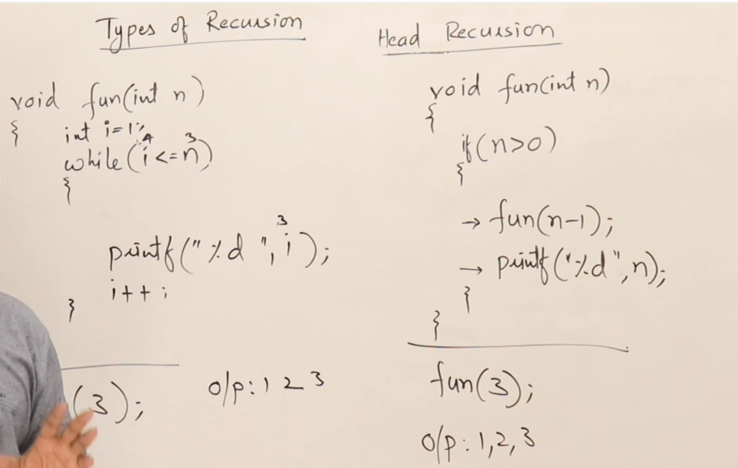 Types of Recursion
void fun(int n)
{
int i=1;
4
3
while(i<=n)
{
3
printf("%d ",i);
i++;
}
(3);
o/p: 1 2 3
Head Recursion
void fun(int n)
{
if(n>0)
{
→ fun(n-1);
→ printf("%d",n);
}
}
fun(3);
o/p: 1,2,3